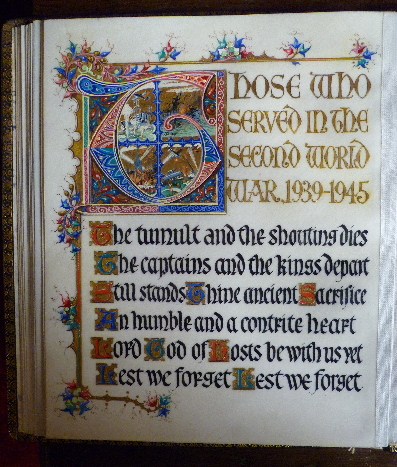 Those who
served in the
Second World
War, 1939-1945
The tumult and the shouting dies
The captains and the kings depart
Still stands Thine ancient Sacrifice
An humble and a contrite heart
Lord God of Hosts be with us yet
Lest we forget Lest we forget